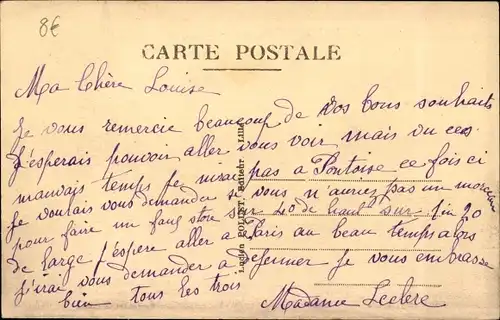 8€
CARTE POSTALE
Ma Chère Louise
Je vous remercie beaucoup de vos bons souhaits
J'esperais pouvoir aller vous voir mais vu ces
mauvais temps je nirai pas a Pontoise ce fois ci
Je voulais vous demander si vous n'auriez pas un morceau
pour faire un faux store sur 40 de haut sur 1m20
de large j'éspère aller a Paris au beau temps alors
J'irai vous demander a dejeuner Je vous embrasse
bien tous les trois
Madame Leclere
Lucien POLLET,